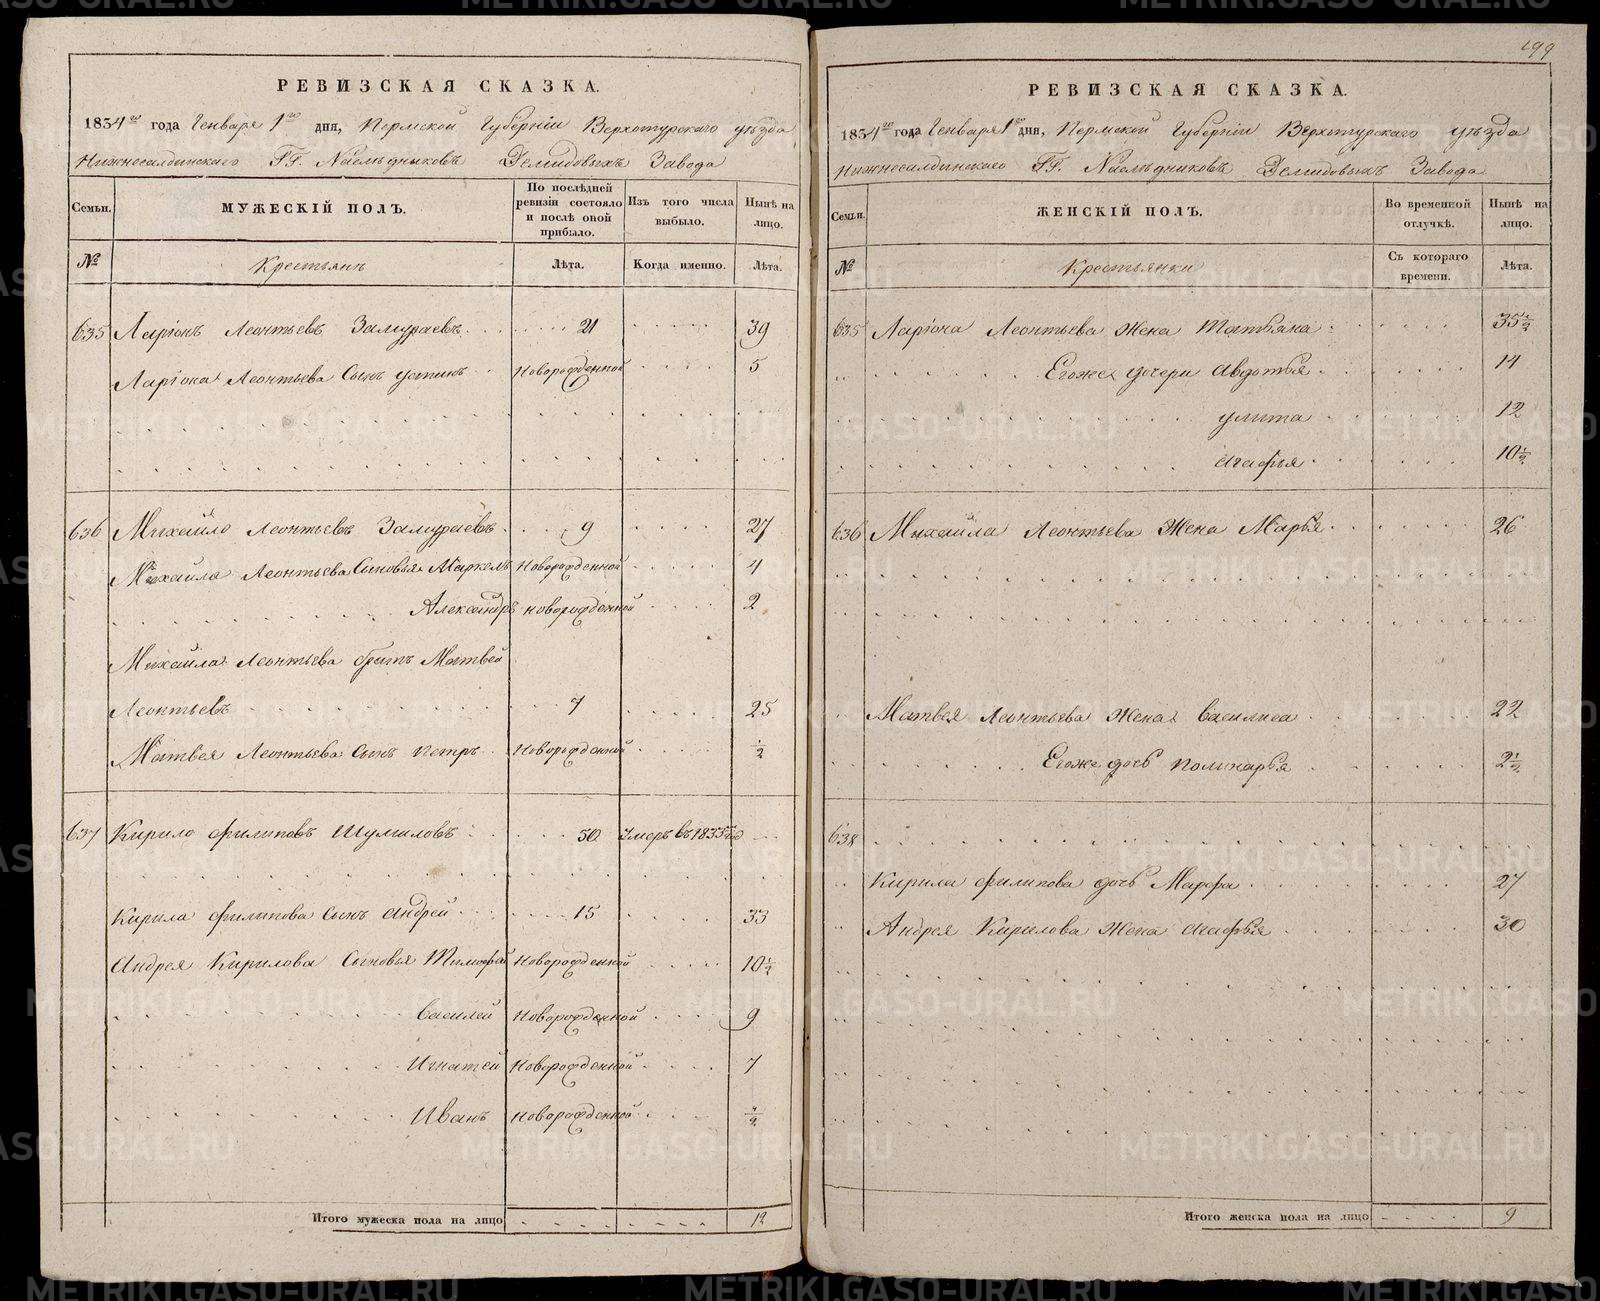 РЕВИЗСКАЯ СКАЗКА.
1834го года Генваря 1го дня, Пермской Губернiи Верхотурскаго уѣзда
Нижнесалдинскаго ГГ. Наслѣдниковъ Демидовыхъ Завода
Семьи.
МУЖЕСКIЙ ПОЛЪ.
По послѣдней ревизiи состояло и послѣ оной прибыло.
Изъ того числа выбыло.
Нынѣ на лицо.
№
Крестьянъ
Лѣта.
Когда именно.
Лѣта.
635 Ларiонъ Леонтьевъ Замураевъ 21 39
Ларiона Леонтьева Сынъ устинъ Новорожденной 5
636 Михайло Леонтьевъ Замураевъ 9 27
Михайла Леонтьева Сыновья Маркелъ Новорожденной 4
Александръ новорожденной 2
Михайла Леонтьева братъ Матвей
Леонтьевъ 7 25
Матвея Леонтьева сынъ петръ Новорожденной 1/2
637 Кирило филиповъ Шумиловъ 50 умеръ въ 1833 год
Кирила филипова сынъ андрей 15 33
андрея Кирилова Сыновья Тимофей Новорожденной 10 1/2
Василей Новорожденной 9
Игнатей Новорожденной 7
Иванъ новорожденной 1/2
Итого мужеска пола на лицо 12
199
РЕВИЗСКАЯ СКАЗКА.
1834го года Генваря 1го дня, Пермской Губернiи Верхотурскаго уѣзда
Нижнесалдинскаго ГГ. Наслѣдниковъ Демидовыхъ Завода
Семьи.
ЖЕНСКIЙ ПОЛЪ.
Во временной отлучкѣ.
Нынѣ на лицо.
№
Крестьянки
Съ котораго времени.
Лѣта.
635 Ларiона Леонтьева жена Татьяна 35 1/2
Егоже дочери авдотья 14
улита 12
агафья 10 1/2
636 Михайла Леонтьева жена Марья 26
Матвея Леонтьева жена василиса 22
Егоже дочь поликарья 2 1/2
638
Кирила филипова дочь Марфа 27
Андрея Кирилова жена агафья 30
Итого женска пола на лицо 9
METRIKI.GASO-URAL.RU